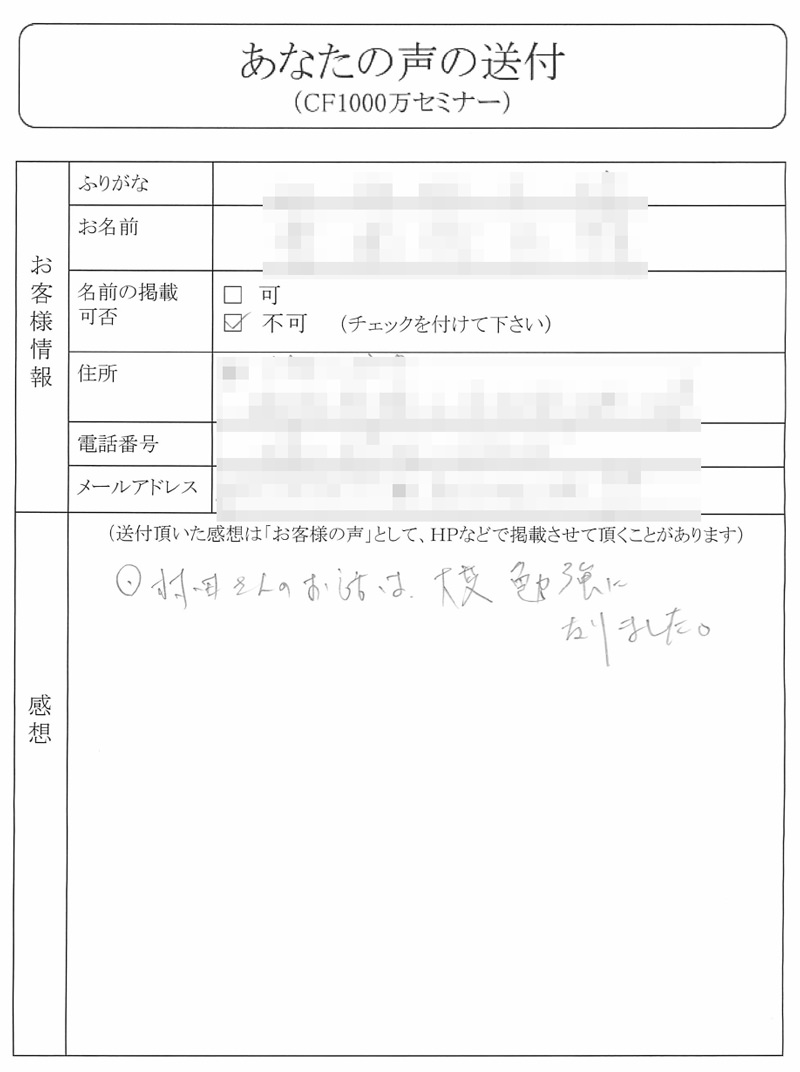 あなたの声の送付
（CF1000万セミナー）
お客様情報
ふりがな
お名前
名前の掲載
可否
□ 可
☑ 不可 （チェックを付けて下さい）
住所
電話番号
メールアドレス
感想
（送付頂いた感想は「お客様の声」として、HPなどで掲載させて頂くことがあります）
さんのお話は、大変勉強に
なりました。